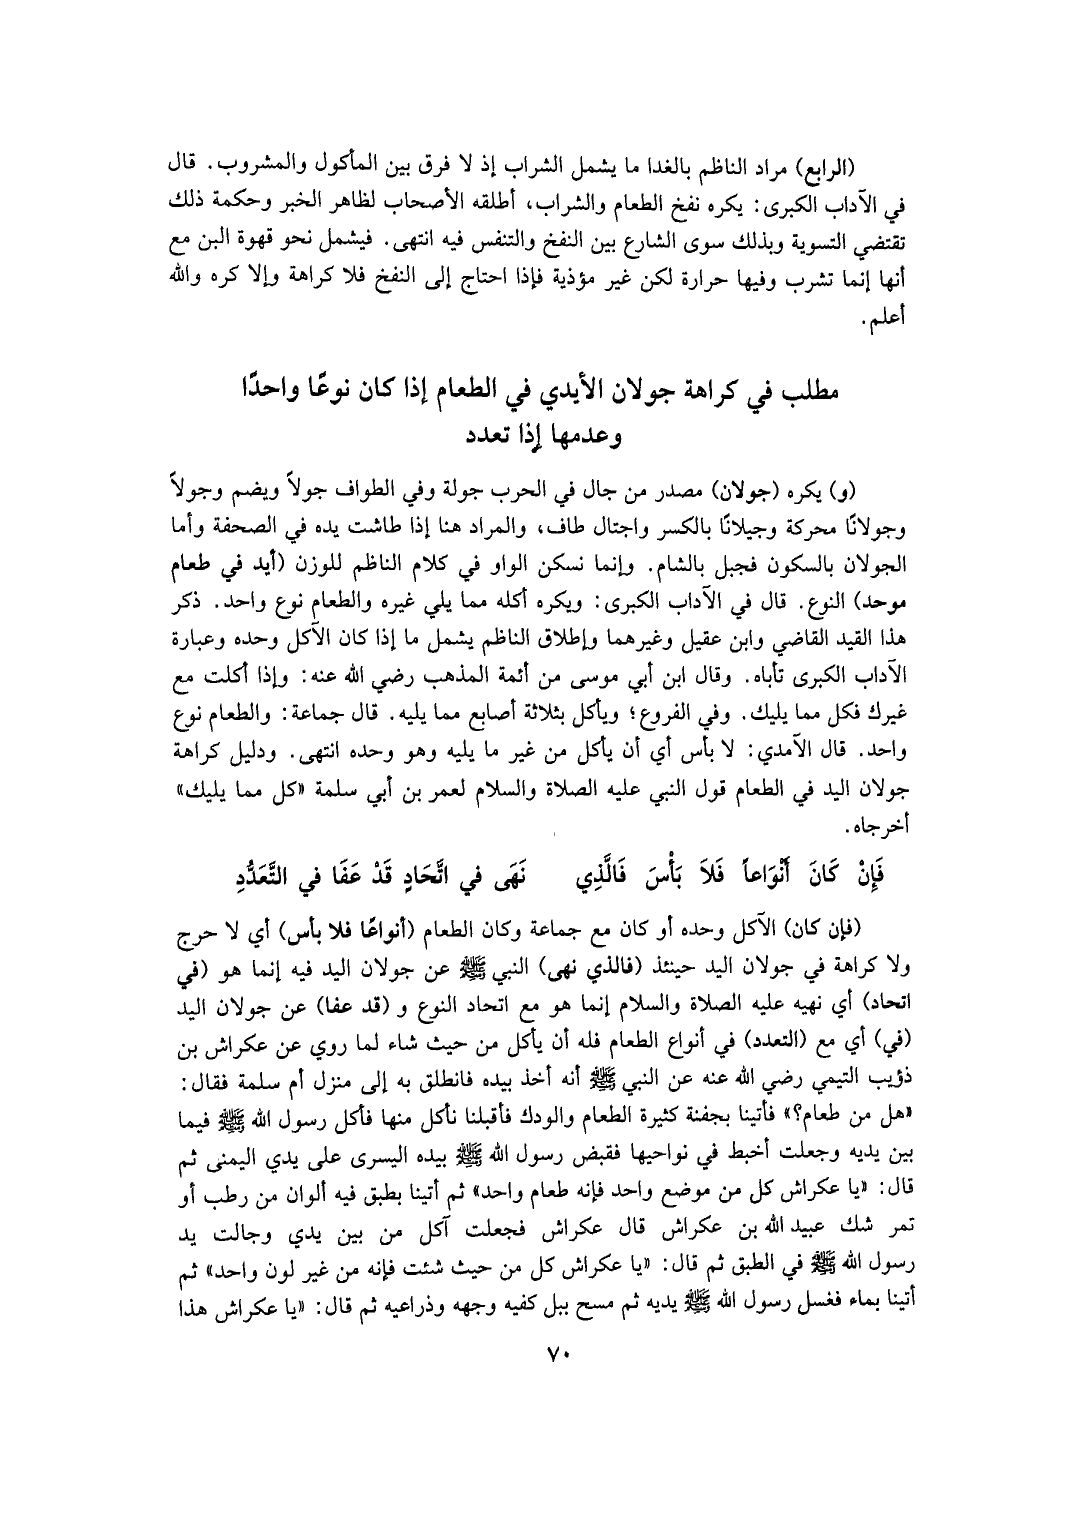 (الرابع) مراد الناظم بالغدا ما يشمل الشراب إذ لا فرق بين المأكول والمشروب. قال
في الآداب الكبرى: يكره نفخ الطعام والشراب، أطلقه الأصحاب لظاهر الخبر وحكمة ذلك
تقتضي التسوية وبذلك سوى الشارع بين النفخ والتنفس فيه انتهى. فيشمل نحو قهوة البن مع
أنها إنما تشرب وفيها حرارة لكن غير مؤذية فإذا احتاج إلى النفخ فلا كراهة وإلا كره والله
أعلم.
مطلب في كراهة جولان الأيدي في الطعام إذا كان نوعًا واحدًا
وعدمها إذا تعدد
(و) يكره (جولان) مصدر من جال في الحرب جولة وفي الطواف جولاً ويضم وجولاً
وجولانًا محركة وجيلانًا بالكسر واجتال طاف، والمراد هنا إذا طاشت يده في الصحفة وأما
الجولان بالسكون فجبل بالشام. وإنما نسكن الواو في كلام الناظم للوزن (أيد في طعام
موحد) النوع. قال في الآداب الكبرى: ويكره أكله مما يلي غيره والطعام نوع واحد. ذكر
هذا القيد القاضي وابن عقيل وغيرهما وإطلاق الناظم يشمل ما إذا كان الآكل وحده وعبارة
الآداب الكبرى تأباه. وقال ابن أبي موسى من أئمة المذهب رضي الله عنه: وإذا أكلت مع
غيرك فكل مما يليك. وفي الفروع؛ ويأكل بثلاثة أصابع مما يليه. قال جماعة: والطعام نوع
واحد. قال الآمدي: لا بأس أي أن يأكل من غير ما يليه وهو وحده انتهى. ودليل كراهة
جولان اليد في الطعام قول النبي عليه الصلاة والسلام لعمر بن أبي سلمة «كل مما يليك»
أخرجاه.
فَإِنْ كَانَ أَنْوَاعاً فَلاَ بَأْسَ فَالَّذِي نَهَى في اتَّحَادٍ قَدْ عَفَا في التَّعَدُّدِ
(فإن كان) الآكل وحده أو كان مع جماعة وكان الطعام (أنواعًا فلا بأس) أي لا حرج
ولا كراهة في جولان اليد حينئذ (فالذي نهى) النبي ﷺ عن جولان اليد فيه إنما هو (في
اتحاد) أي نهيه عليه الصلاة والسلام إنما هو مع اتحاد النوع و (قد عفا) عن جولان اليد
(في) أي مع (التعدد) في أنواع الطعام فله أن يأكل من حيث شاء لما روي عن عكراش بن
ذؤيب التيمي رضي الله عنه عن النبي ﷺ أنه أخذ بيده فانطلق به إلى منزل أم سلمة فقال:
«هل من طعام؟» فأتينا بجفنة كثيرة الطعام والودك فأقبلنا نأكل منها فأكل رسول الله ﷺ فيما
بين يديه وجعلت أخبط في نواحيها فقبض رسول الله ﷺ بيده اليسرى على يدي اليمنى ثم
قال: «يا عكراش كل من موضع واحد فإنه طعام واحد» ثم أتينا بطبق فيه ألوان من رطب أو
تمر شك عبيد الله بن عكراش قال عكراش فجعلت آكل من بين يدي وجالت يد
رسول الله ﷺ في الطبق ثم قال: «يا عكراش كل من حيث شئت فإنه من غير لون واحد» ثم
أتينا بماء فغسل رسول الله ﷺ يديه ثم مسح ببل كفيه وجهه وذراعيه ثم قال: «يا عكراش هذا
٧٠